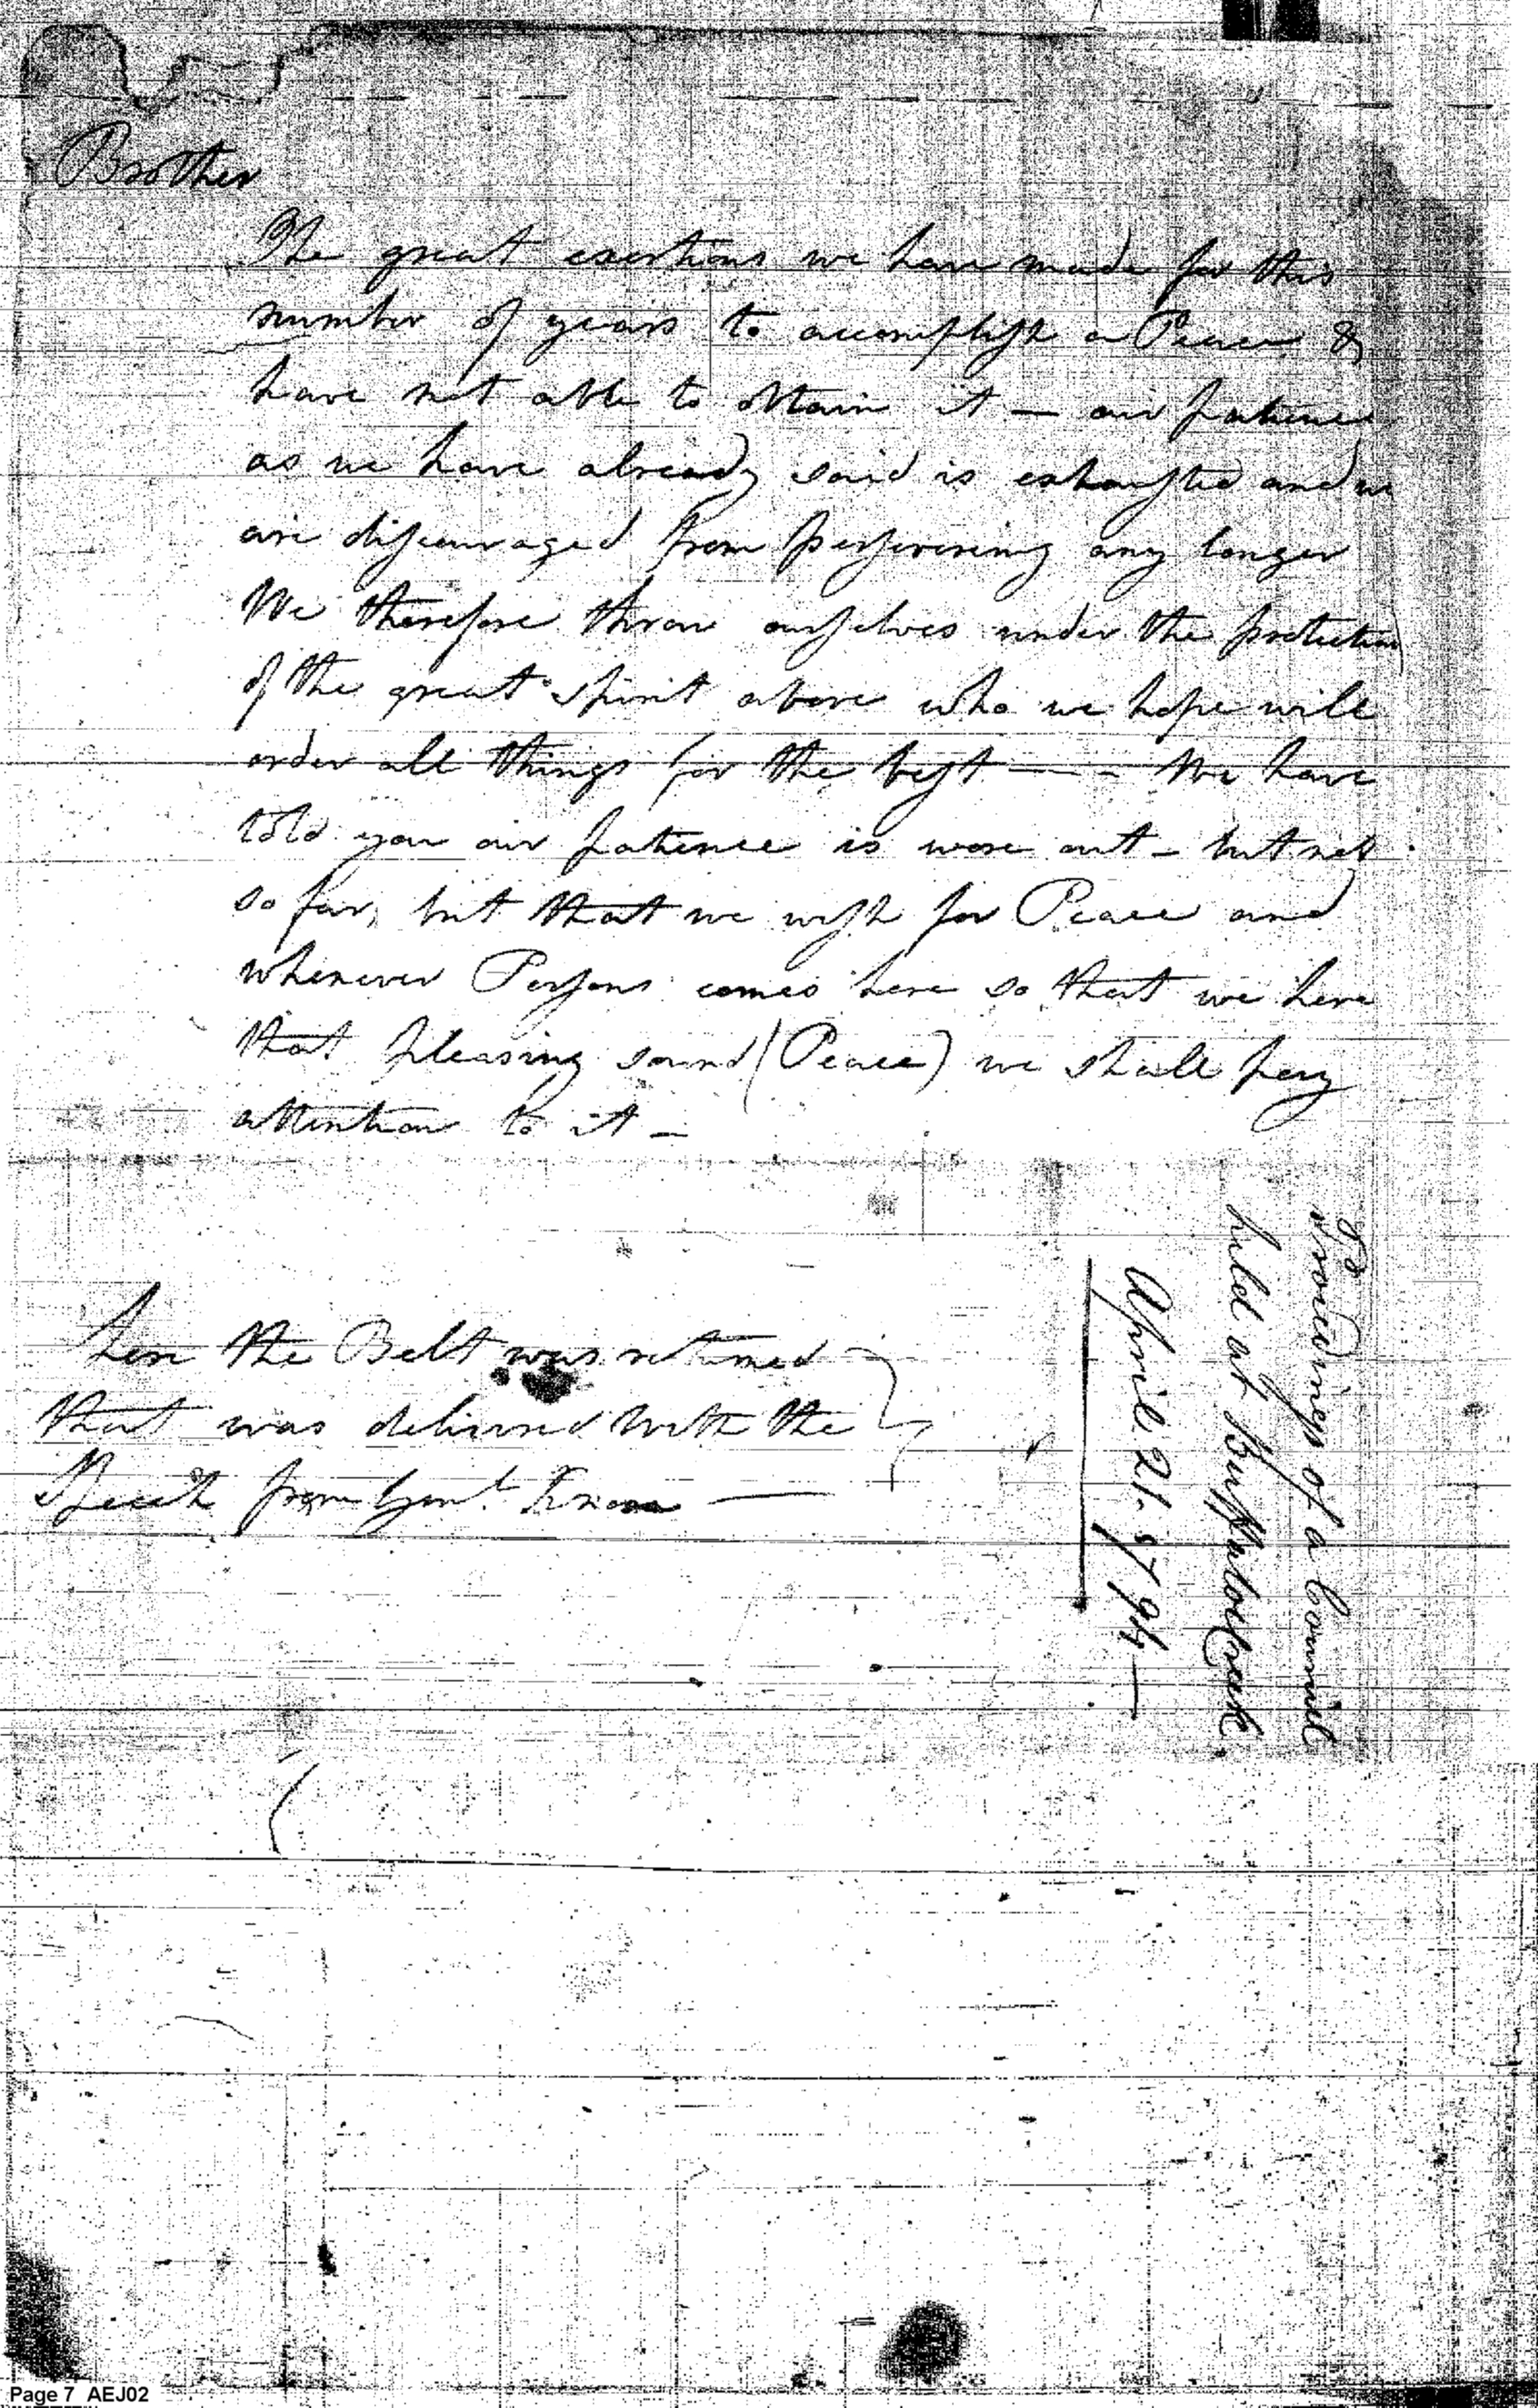 Brother
The great exertions we have made for this
number of years to accomplish a Peace &
have not able to obtain it — our patience
as we have already said is exhausted and we
are discouraged from persevering any longer
We therefore throw ourselves under the protection
of the great Spirit above who we hope will
order all things for the best — — We have
told you our patience is wore out — but not
so far, but that we wish for Peace and
whenever Persons comes here so that we here
that pleasing sound (Peace) we shall pay
attention to it —
here the Belt was returned
that was delivered with the
Speech from Genl. Knox —
Proceedings of a Council
held at Buffaloe Creek
April 21. 1794 —
Page 7 AEJ02